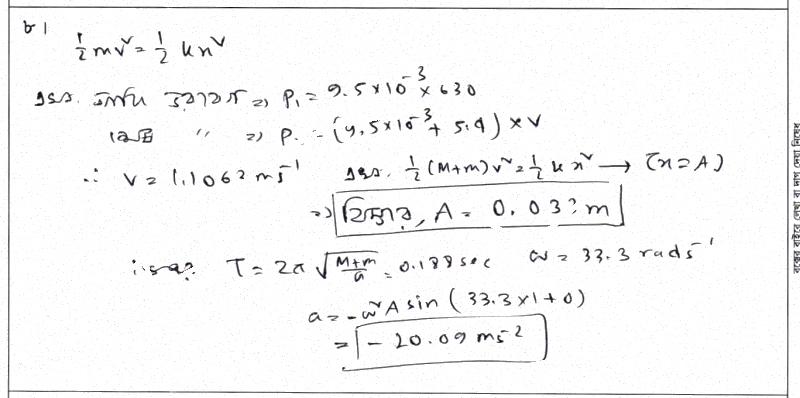 ৮।
½mv² = ½ kx²
⇒ P₁ = 9.5×10⁻³ × 630
" ⇒ P = (9.5×10⁻³ + 5.4) × v
∴ v = 1.1062 ms⁻¹ ½ (M+m) v² = ½ k x² → [x = A]
⇒ বিস্তার, A = 0.033 m
T = 2π √(M+m/k) = 0.188 sec ω = 33.3 rads⁻¹
a = -ω²A sin (33.3×1+0)
= -20.09 ms⁻²
বক্সের বাইরে লেখা বা দাগ দেয়া নিষেধ